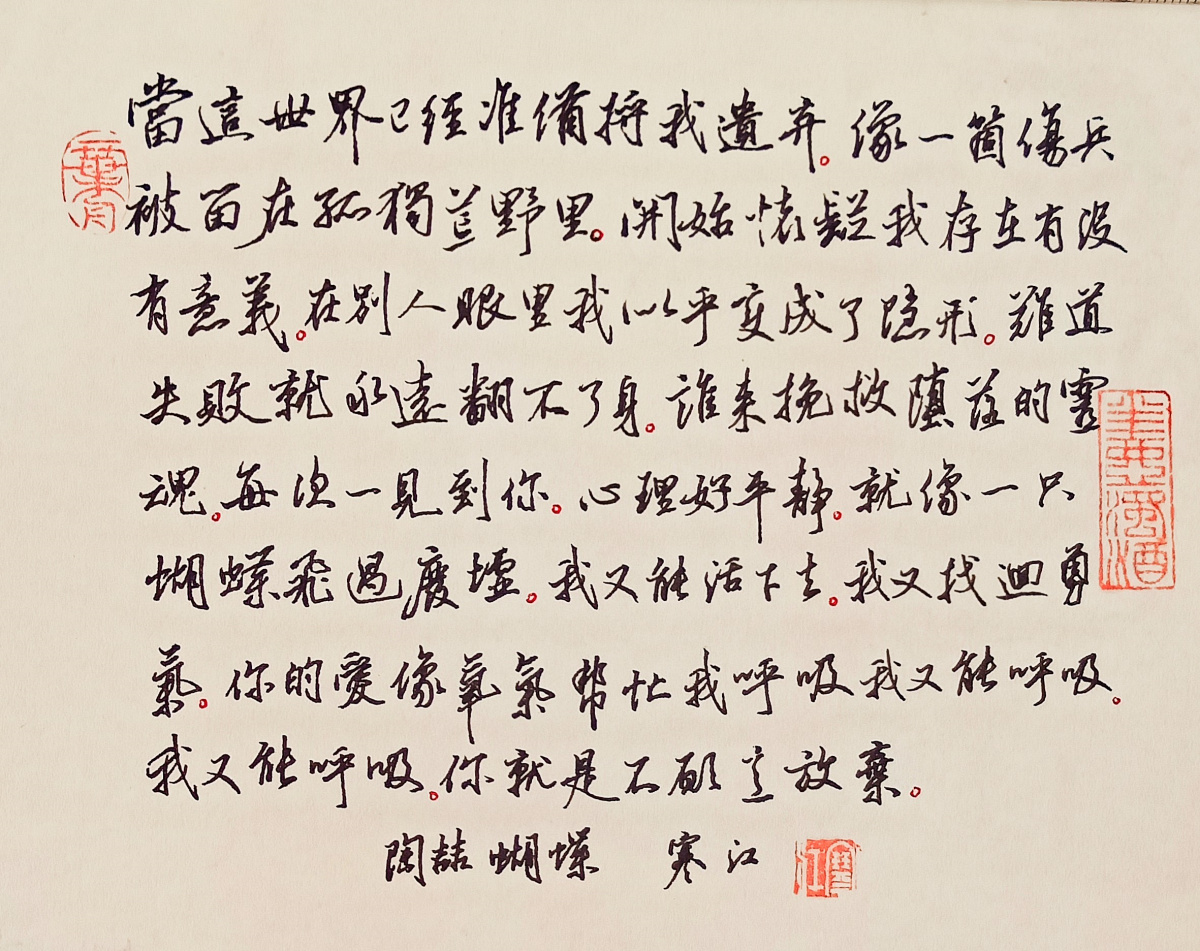 當這世界已經准備將我遺弃。像一箇傷兵
被留在孤獨荒野里。開始懷疑我存在有没
有意義。在别人眼里我似乎变成了隐形。難道
失敗就永遠翻不了身。誰来挽救墮落的靈
魂。每次一見到你。心理好平静。就像一只
蝴蝶飛過廢墟。我又能活下去。我又找迴勇
氣。你的愛像氧氣帮忙我呼吸我又能呼吸。
我又能呼吸。你就是不願意放棄。
陶喆蝴蝶 寒江
寒江